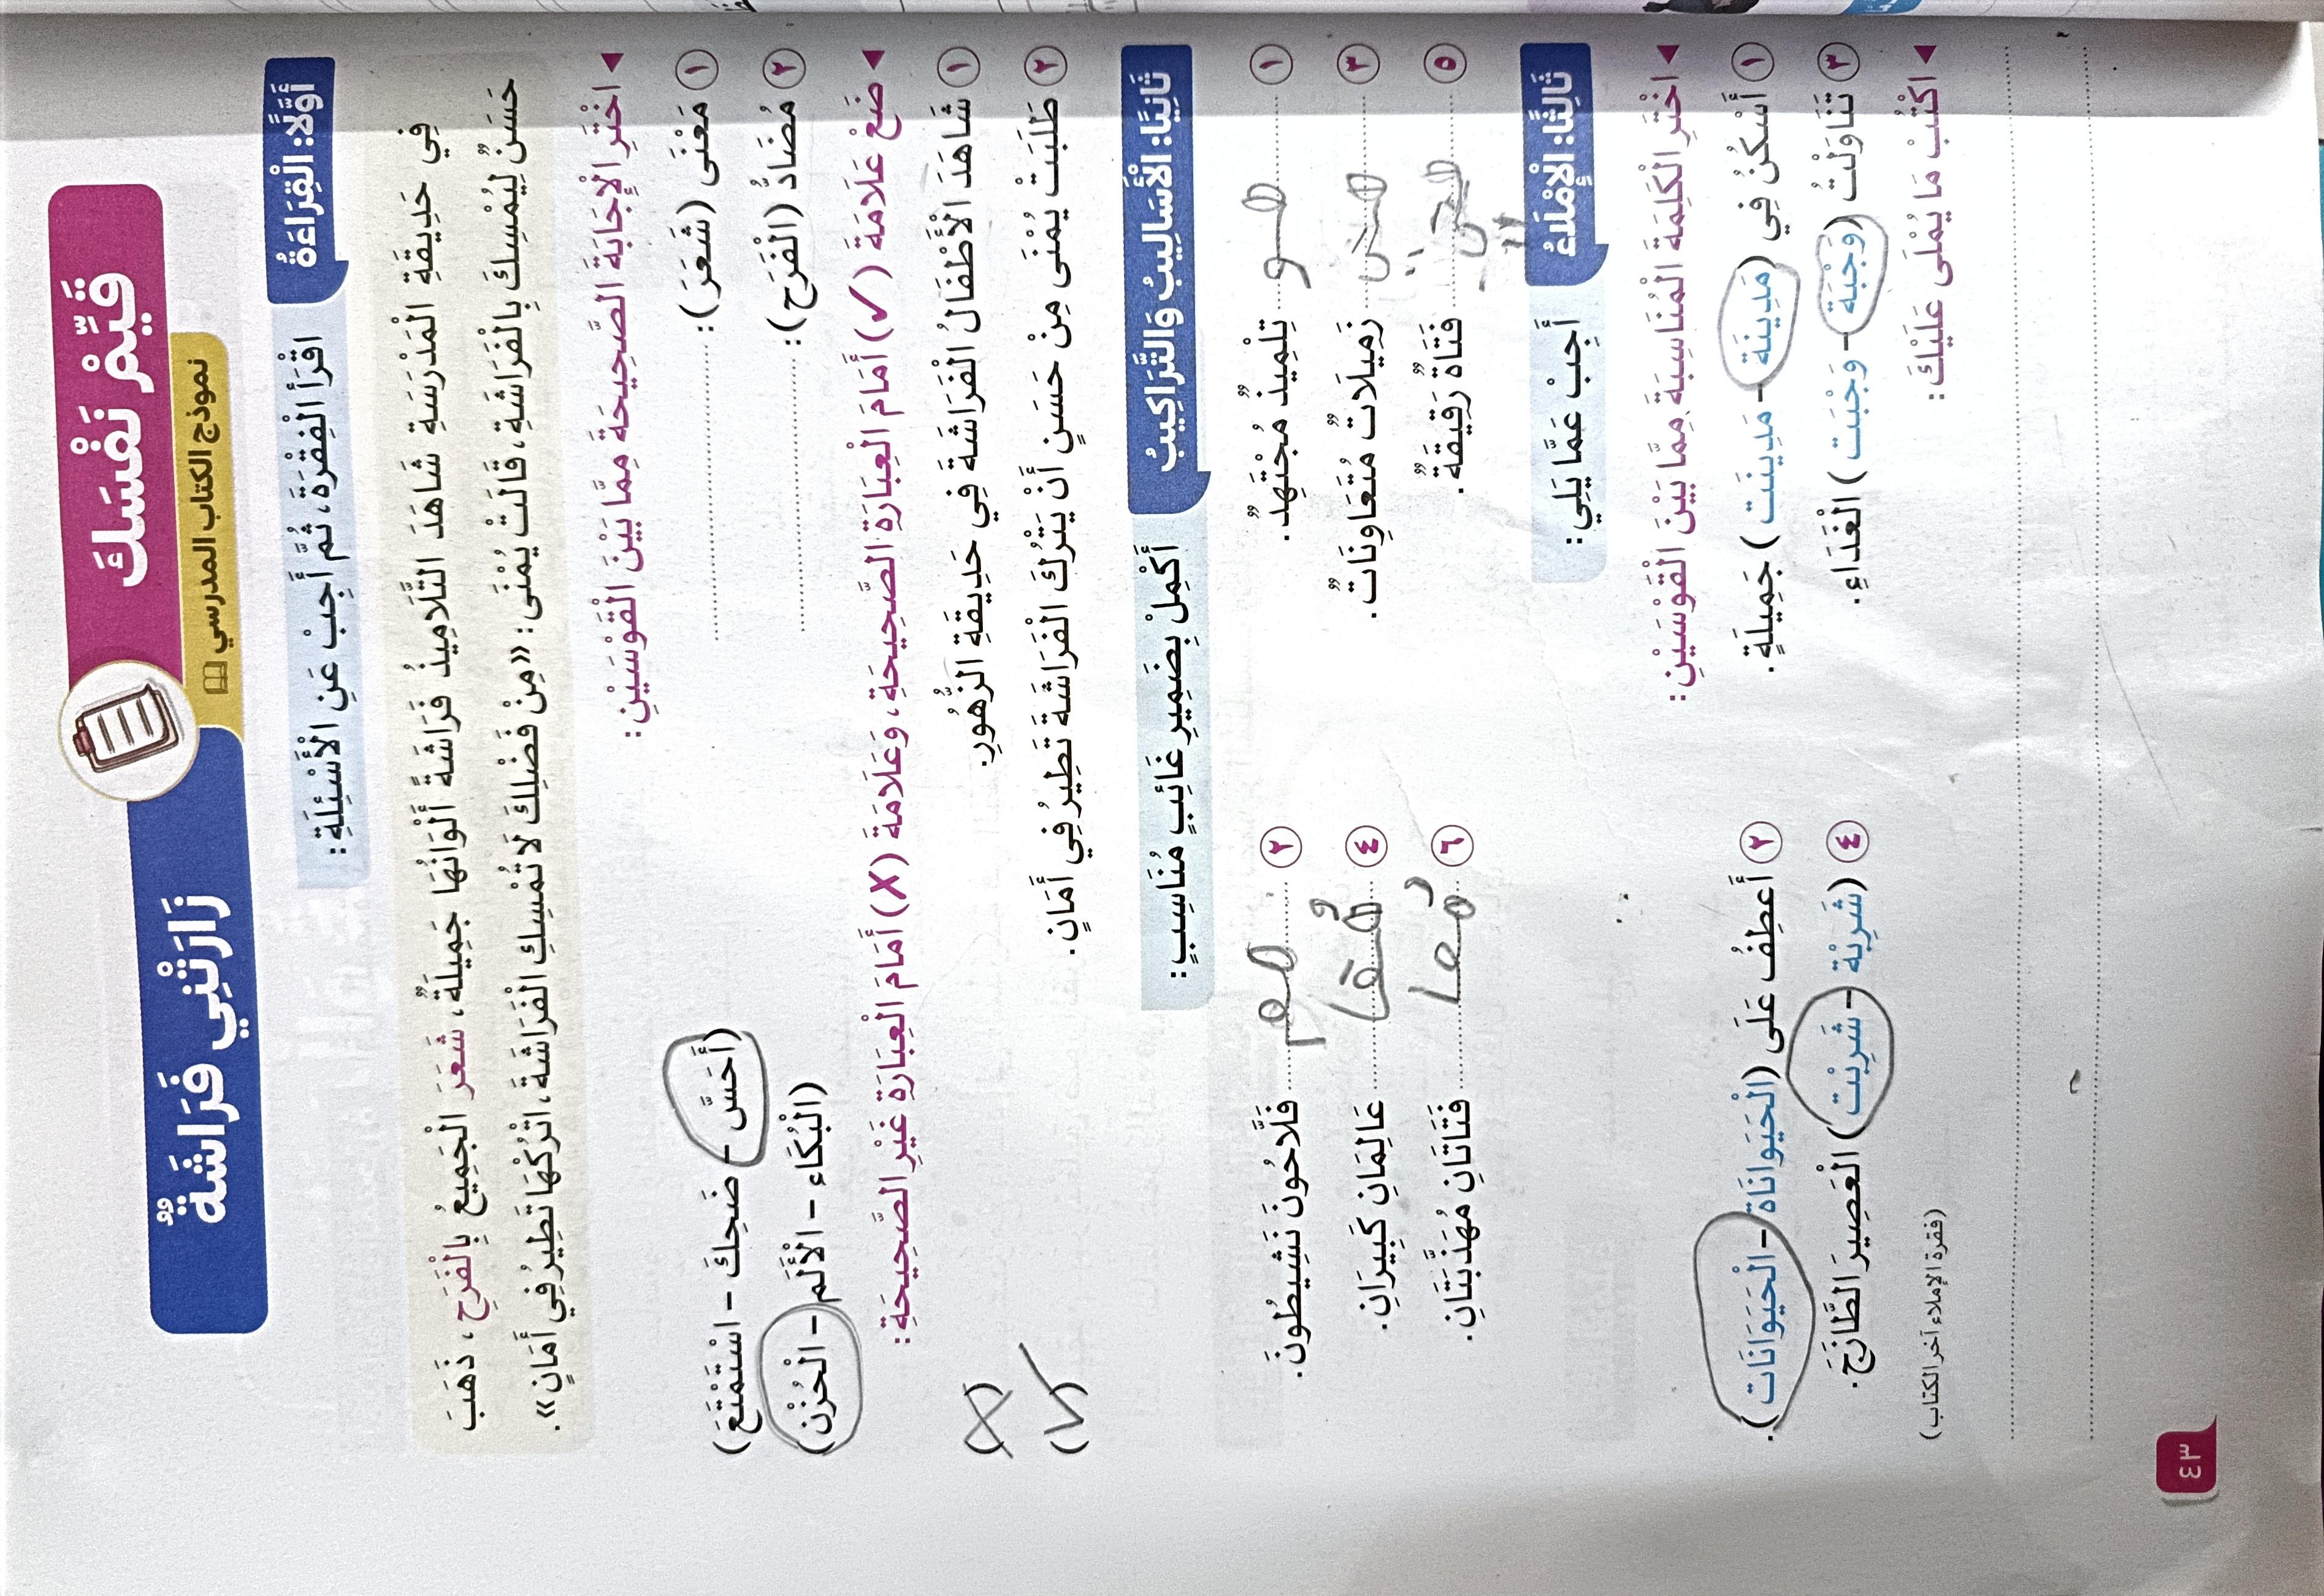 قَيِّمْ نَفْسَكَ
زَارَتْنِي فَرَاشَةٌ
نموذج الكتاب المدرسي
أَوَّلًا: الْقِرَاءَةُ اقْرَأِ الْفِقْرَةَ، ثُمَّ أَجِبْ عَنِ الْأَسْئِلَةِ:
فِي حَدِيقَةِ الْمَدْرَسَةِ شَاهَدَ التَّلَامِيذُ فَرَاشَةً أَلْوَانُهَا جَمِيلَةٌ، شَعَرَ الْجَمِيعُ بِالْفَرَحِ، ذَهَبَ
حَسَنٌ لِيُمْسِكَ بِالْفَرَاشَةِ، قَالَتْ يُمْنَى: «مِنْ فَضْلِكَ لَا تُمْسِكِ الْفَرَاشَةَ، اتْرُكْهَا تَطِيرُ فِي أَمَانٍ».
◀ اخْتَرِ الْإِجَابَةَ الصَّحِيحَةَ مِمَّا بَيْنَ الْقَوْسَيْنِ:
١ مَعْنَى (شَعَرَ): ........ (أَحَسَّ – ضَحِكَ – اسْتَمْتَعَ)
٢ مُضَادُّ (الْفَرَح): ........ (الْبُكَاء – الْأَلَم – الْحُزْن)
◀ ضَعْ عَلَامَةَ (✓) أَمَامَ الْعِبَارَةِ الصَّحِيحَةِ، وَعَلَامَةَ (X) أَمَامَ الْعِبَارَةِ غَيْرِ الصَّحِيحَةِ:
١ شَاهَدَ الْأَطْفَالُ الْفَرَاشَةَ فِي حَدِيقَةِ الزُّهُورِ. (X)
٢ طَلَبَتْ يُمْنَى مِنْ حَسَنٍ أَنْ يَتْرُكَ الْفَرَاشَةَ تَطِيرُ فِي أَمَانٍ. (✓)
ثَانِيًا: الْأَسَالِيبُ وَالتَّرَاكِيبُ أَكْمِلْ بِضَمِيرِ غَائِبٍ مُنَاسِبٍ:
١ هو تِلْمِيذٌ مُجْتَهِدٌ. ٢ هم فَلَّاحُونَ نَشِيطُونَ.
٣ هن زَمِيلَاتٌ مُتَعَاوِنَاتٌ. ٤ هُمَا عَالِمَانِ كَبِيرَانِ.
٥ هي فَتَاةٌ رَقِيقَةٌ. ٦ هُما فَتَاتَانِ مُهَذَّبَتَانِ.
ثَالِثًا: الْإِمْلَاءُ أَجِبْ عَمَّا يَلِي:
◀ اخْتَرِ الْكَلِمَةَ الْمُنَاسِبَةَ مِمَّا بَيْنَ الْقَوْسَيْنِ:
١ أَسْكُنُ فِي (مَدِينَة – مَدِينَت) جَمِيلَةٍ. ٢ أَعْطِفُ عَلَى (الْحَيَوَانَاة – الْحَيَوَانَات).
٣ تَنَاوَلْتُ (وَجْبَة – وَجْبَت) الْغَدَاءِ. ٤ (شَرِبْة – شَرِبْت) الْعَصِيرَ الطَّازَجَ.
◀ اكْتُبْ مَا يُمْلَى عَلَيْكَ: (فقرة الإملاء آخر الكتاب)
٤٣